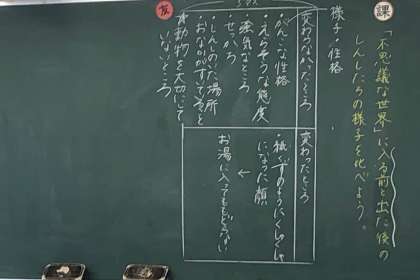 課
「不思議な世界」に入る前と出た後の
しんしたちの様子を比べよう。
様子・性格
変わらなかったところ
・がんこな性格
・えらそうな態度
・強気なところ
・せっかち
・しんしのした場所
・おなかがすいてること
・動物を大切にして
いないところ
変わったところ
・紙くずのようにくしゃくしゃ
になった顔
↓
お湯に入ってももどらない
友